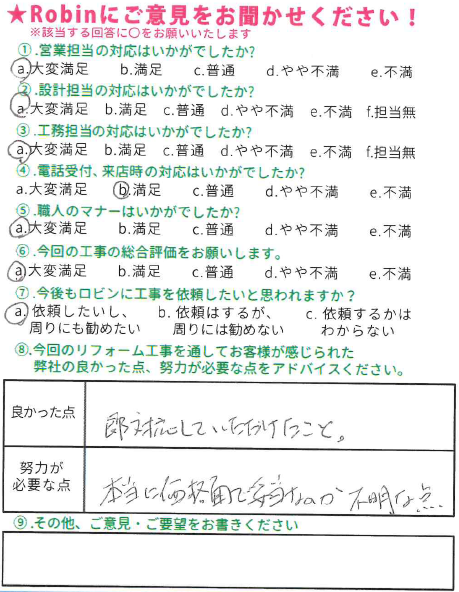 ★Robinにご意見をお聞かせください！
※該当する回答に〇をお願いいたします
①.営業担当の対応はいかがでしたか?
a.大変満足 b.満足 c.普通 d.やや不満 e.不満
②.設計担当の対応はいかがでしたか?
a.大変満足 b.満足 c.普通 d.やや不満 e.不満 f.担当無
③.工務担当の対応はいかがでしたか?
a.大変満足 b.満足 c.普通 d.やや不満 e.不満 f.担当無
④.電話受付、来店時の対応はいかがでしたか?
a.大変満足 b.満足 c.普通 d.やや不満 e.不満
⑤.職人のマナーはいかがでしたか?
a.大変満足 b.満足 c.普通 d.やや不満 e.不満
⑥.今回の工事の総合評価をお願いします。
a.大変満足 b.満足 c.普通 d.やや不満 e.不満
⑦.今後もロビンに工事を依頼したいと思われますか？
a.依頼したいし、 b.依頼はするが、 c.依頼するかは
周りにも勧めたい 周りには勧めない わからない
⑧.今回のリフォーム工事を通してお客様が感じられた
弊社の良かった点、努力が必要な点をアドバイスください。
良かった点
即対応していただけたこと。
努力が
必要な点
本当に価格面で妥当なのか不明な点
⑨.その他、ご意見・ご要望をお書きください